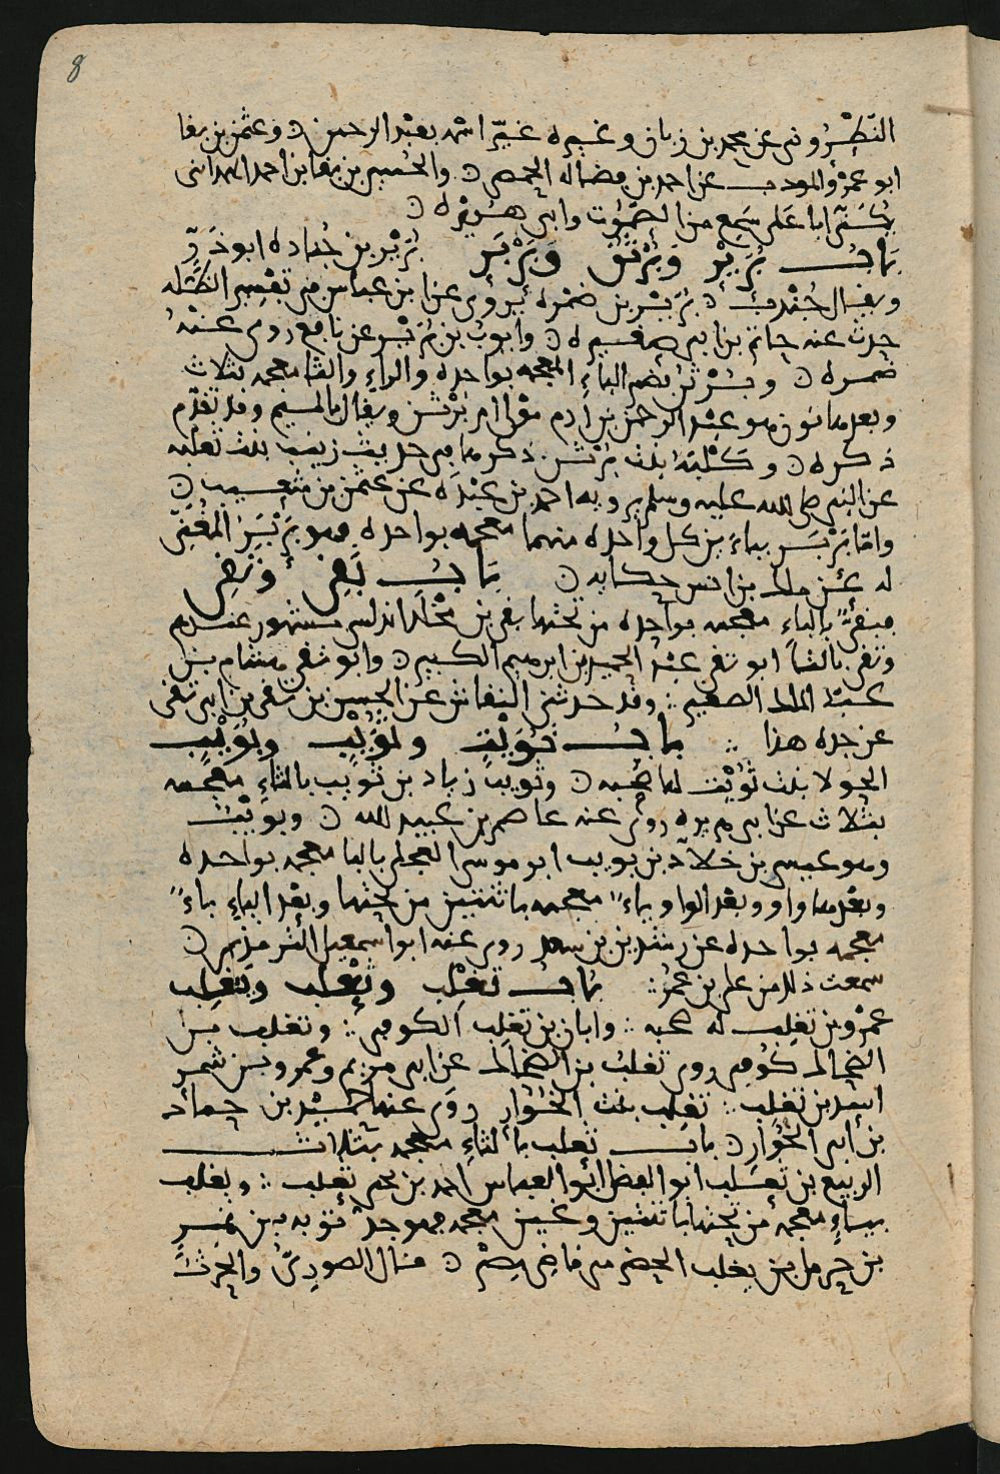 8
النطروني عن محمد بن زبان وغيره غير اسمه بعبد الرحمن ن وعثمن بن بقا
ابو عمرو المودب عن احمد بن فضاله الحمصي ن والحسين بن بقا بن احمد الهمداني
يكنى ابا علي سمع من الحضرت وابي هريره ن
باب برير وبرثن وبربر برير بن جناده ابو ذر
ويقال جندب ن برير بن ضمره يروي عن ابن عباس في تفسير
حدث عنه حاتم بن ابي صغيره ن وايوب بن برير عن نافع روى عنه
ضمره ن وبرثن بضم الباء المعجمه بواحده والراء والثا معجمه بثلاث
وبعدها نون فهو عبد الرحمن بن ادم مولى ام برثن ويقال بالميم وقد تقدم
ذكره ن بنت برثن ذكرها في حديث زينب بنت ثعلبه
عن النبي صلى الله عليه وسلم يرويه احمد بن عبده عن عثمن بن شعيب ن
واما بربر بباءين كل واحده منهما معجمه بواحده فهو بربر المغني
له عن ملك بن انس حكايه ن باب بقي وتقي
فبقي بالباء معجمه بواحده من تحتها بقي بن مخلد اندلسي مشهور عندهم
وتقي بالتا ابو تقي عبد الحميد بن ابرهيم الكبير ن وابو تقي هشام بن
عبد الملك الصغير وقد حدثني النقاش عن الحسين بن تقي بن ابي تقي
عن جده هذا باب تويت وثويب وبويب
الحولا بنت تويت لها صحبه ن وثويب زياد بن ثويب بالثاء معجمه
بثلاث عن ابي هريره روى عنه عاصم بن عبيد الله ن وبويب
وهو عيسى بن خلاد بن بويب ابو موسى العجلي بالبا معجمه بواحده
وبعدها واو وبعد الواو ياء معجمه باثنتين من تحتها وبعد الياء باء
معجمه بواحده عن رشدين بن سعد روى عنه ابو اسمعيل الترمذي ن
سمعت ذلك من علي بن عمر باب تغلب وثعلب ويغلب
عمرو بن تغلب له صحبه وابان بن تغلب الكوفي وتغلب بن
الضحاك كوفي روى تغلب بن الضحاك عن ابي مريم وعمرو بن شمر
اسيد بن تغلب تغلب بنت الخوار روى عنها حميد بن حماد
بن ابي الخوار ن باب ثعلب بالثاء معجمه بثلاث
الربيع بن ثعلب ابو الفضل ابو العباس احمد بن يحيى ثعلب ويغلب
بياء معجمه من تحتها باثنتين وغين معجمه فهو جد توبه بن نمر
بن حرمل بن يغلب الحضرمي قاضي مصر ن قال الصوري والحرث